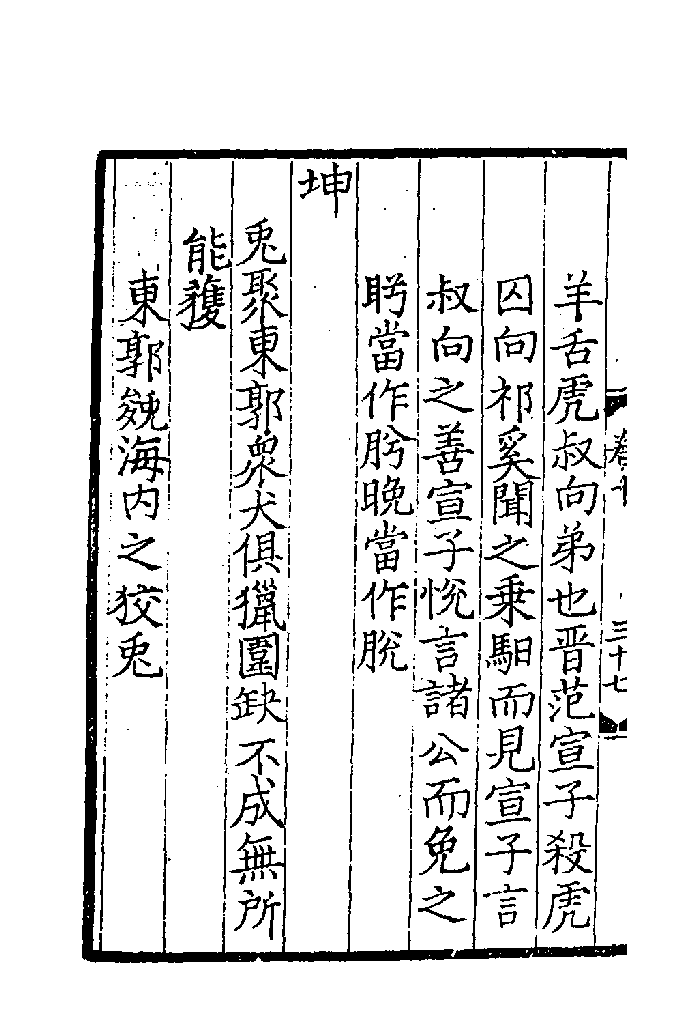 羊舌虎叔向弟也晋范宣子殺虎
囚向祁奚聞之乗馹而見宣子言
叔向之善宣子悅言諸公而免之
盻當作肹晚當作脫
坤
兎聚東郭衆犬俱獵圍缺不成無所
能獲
東郭㕙海内之狡兎
三十七